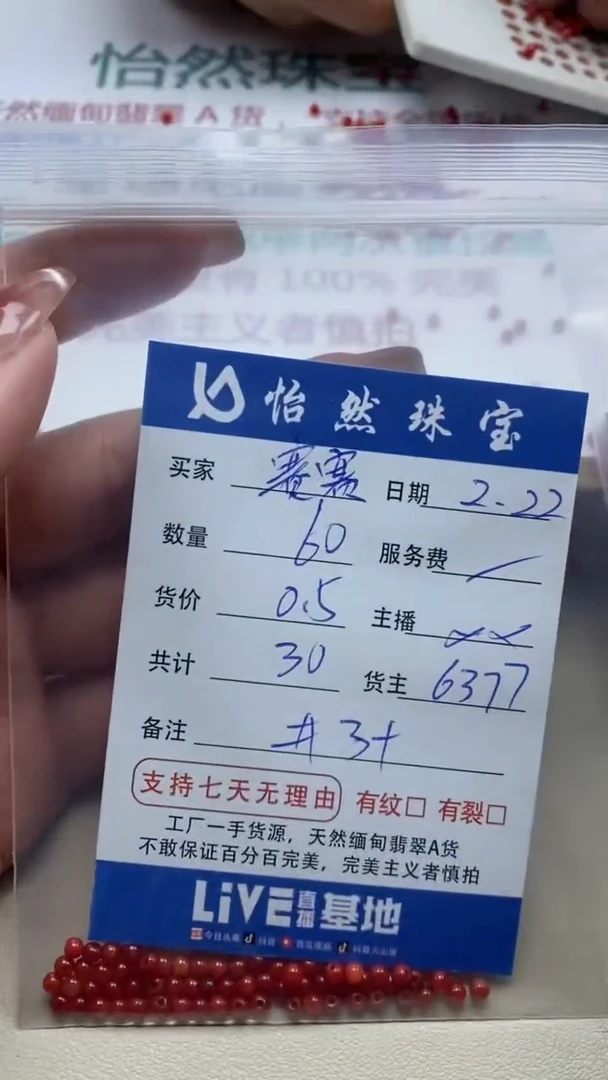 怡然珠宝
天然缅甸翡翠A货，
100% 完美
完美主义者慎拍
怡然珠宝
买家 赛赛 日期 2-22
数量 60 服务费
货价 0.5 主播
共计 30 货主 6377
备注 # 3+
支持七天无理由 有纹□ 有裂□
工厂一手货源，天然缅甸翡翠A货
不敢保证百分百完美，完美主义者慎拍
LiVE直播基地
今日头条 抖音 西瓜视频 抖音火山版